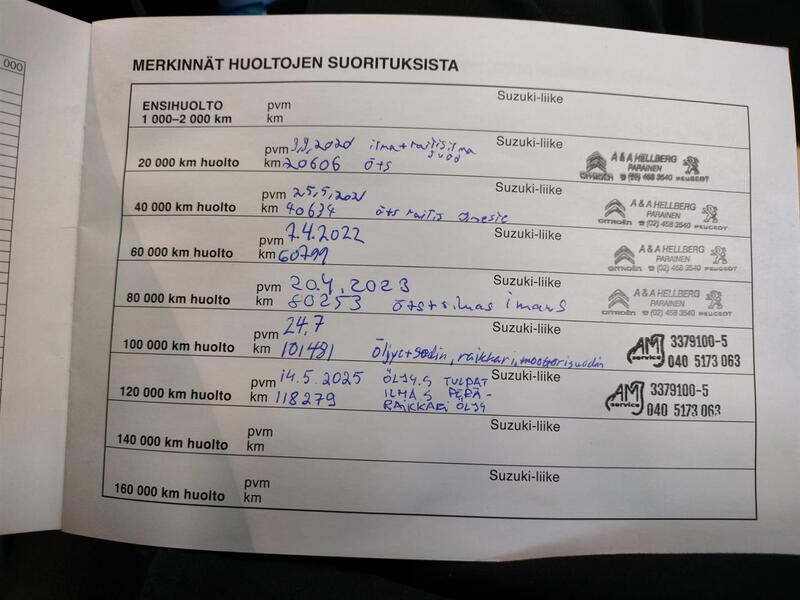 000
MERKINNÄT HUOLTOJEN SUORITUKSISTA
ENSIHUOLTO pvm Suzuki-liike
1 000–2 000 km km
pvm 3.9.2020 ilma+raitisilma Suzuki-liike
suod
20 000 km huolto km 20606 öts
A & A HELLBERG
PARAINEN
CITROËN ☎ (02) 458 3540 PEUGEOT
pvm 25.5.2021 Suzuki-liike
40 000 km huolto km 40634 öts raitis
A & A HELLBERG
PARAINEN
CITROËN ☎ (02) 458 3540 PEUGEOT
pvm 7.4.2022 Suzuki-liike
60 000 km huolto km 60799
A & A HELLBERG
PARAINEN
CITROËN ☎ (02) 458 3540 PEUGEOT
pvm 20.4.2023 Suzuki-liike
80 000 km huolto km 80253
A & A HELLBERG
PARAINEN
CITROËN ☎ (02) 458 3540 PEUGEOT
pvm 24.7 Suzuki-liike
100 000 km huolto km 101481 Öljyt+suodin, raikkari, moottorisuodin
AMJ service 3379100-5
040 5173 063
pvm 14.5.2025 ÖLJY.S TULPAT Suzuki-liike
120 000 km huolto km 118279 ILMA.S PERÄ-
RAIKKARI ÖLJY
AMJ service 3379100-5
040 5173 063
pvm Suzuki-liike
140 000 km huolto km
pvm Suzuki-liike
160 000 km huolto km